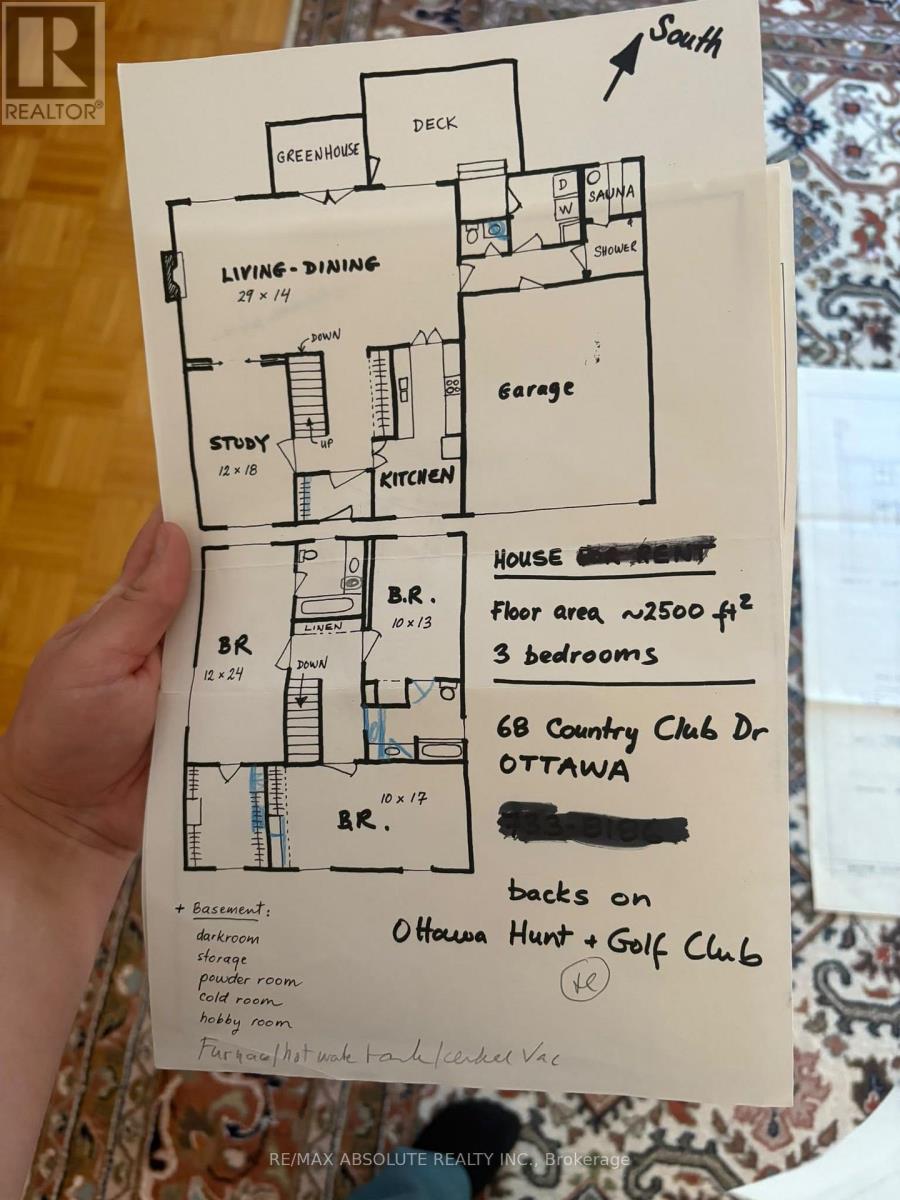 R
REALTOR®
South
DECK
GREENHOUSE
D
W
SAUNA
SHOWER
LIVING-DINING
29 x 14
DOWN
UP
STUDY
12 x 18
KITCHEN
Garage
BR
12 x 24
LINEN
DOWN
B.R.
10 x 13
10 x 17
B.R.
HOUSE FOR RENT
Floor area ~2500 ft²
3 bedrooms
68 Country Club Dr
OTTAWA
backs on
Ottawa Hunt + Golf Club
+ Basement:
darkroom
storage
powder room
cold room
hobby room
Furnace/hot wate tank/
Vac
RE/MAX ABSOLUTE REALTY INC., Brokerage